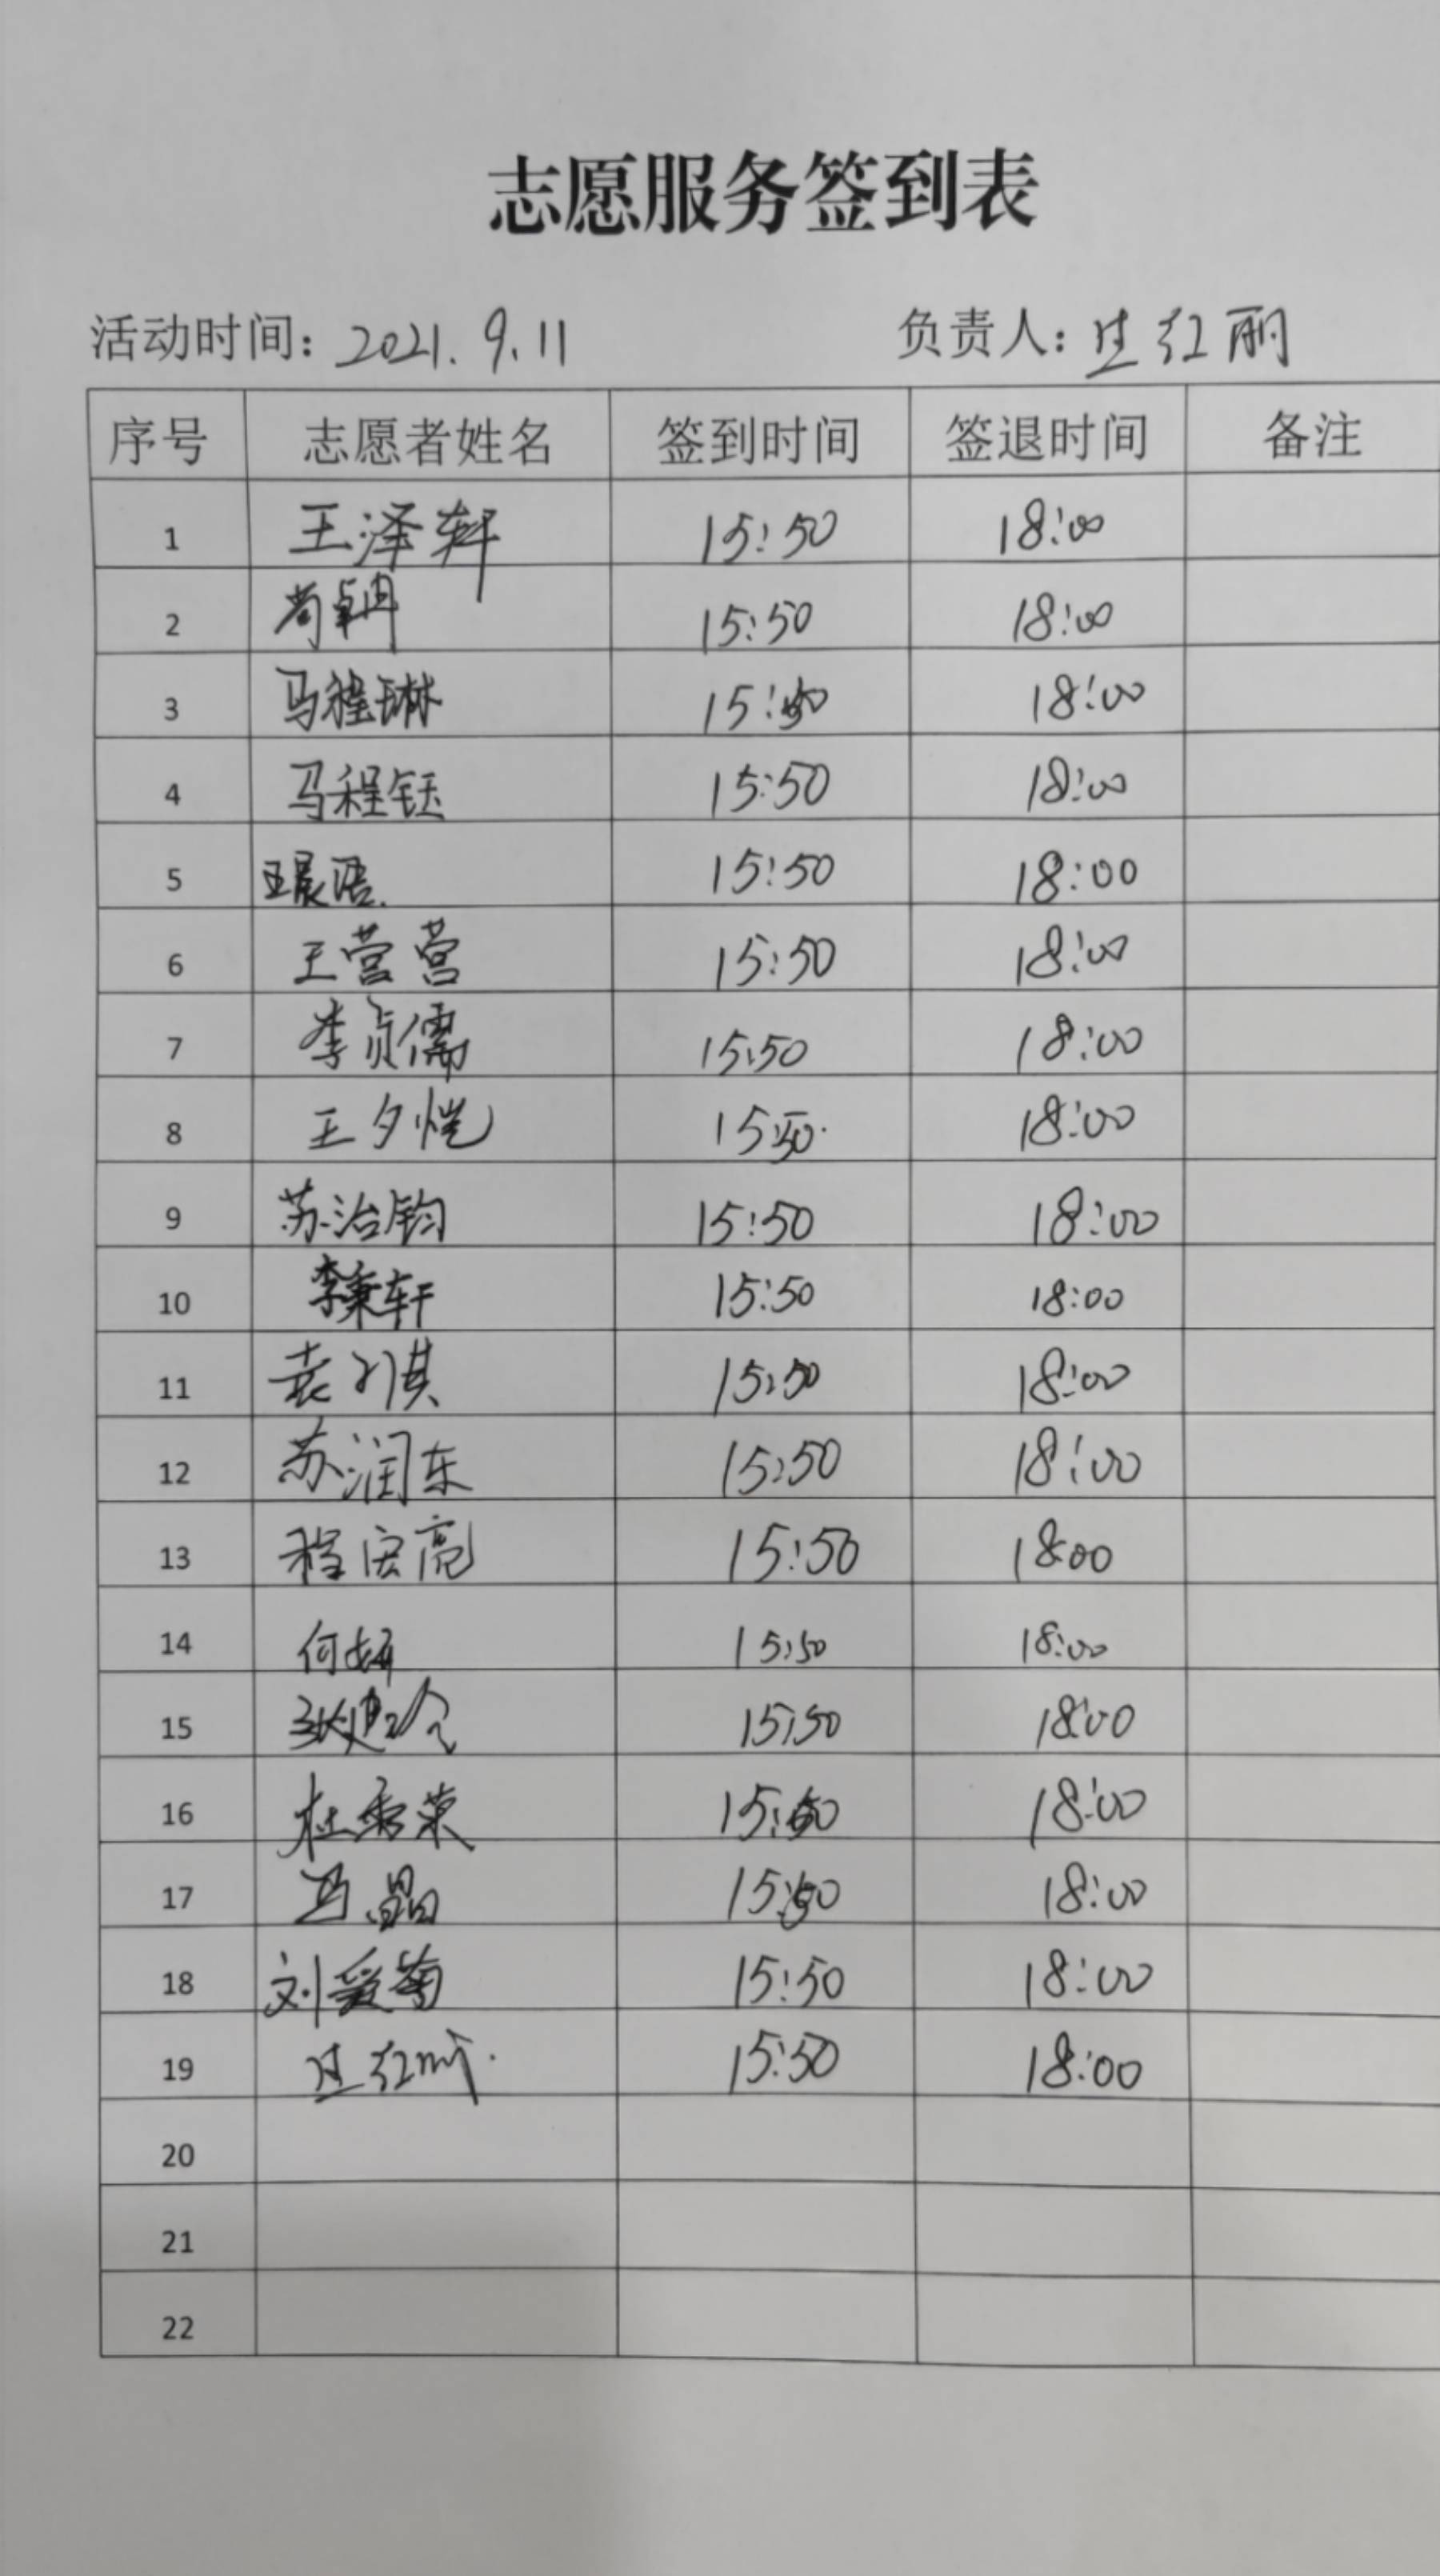 志愿服务签到表
活动时间: 2021.9.11 负责人: 过红丽
序号 志愿者姓名 签到时间 签退时间 备注
1 王泽轩 15:50 18:00
2 15:50 18:00
3 马程琳 15:50 18:00
4 马程钰 15:50 18:00
5 王晨语 15:50 18:00
6 王营营 15:50 18:00
7 李贞儒 15:50 18:00
8 王夕恺 15:50 18:00
9 苏治钧 15:50 18:00
10 李秉轩 15:50 18:00
11 15:50 18:00
12 苏润东 15:50 18:00
13 程宏亮 15:50 18:00
14 何妍 15:50 18:00
15 15:50 18:00
16 杜秀荣 15:50 18:00
17 冯晶 15:50 18:00
18 刘爱菊 15:50 18:00
19 过红丽 15:50 18:00
20
21
22